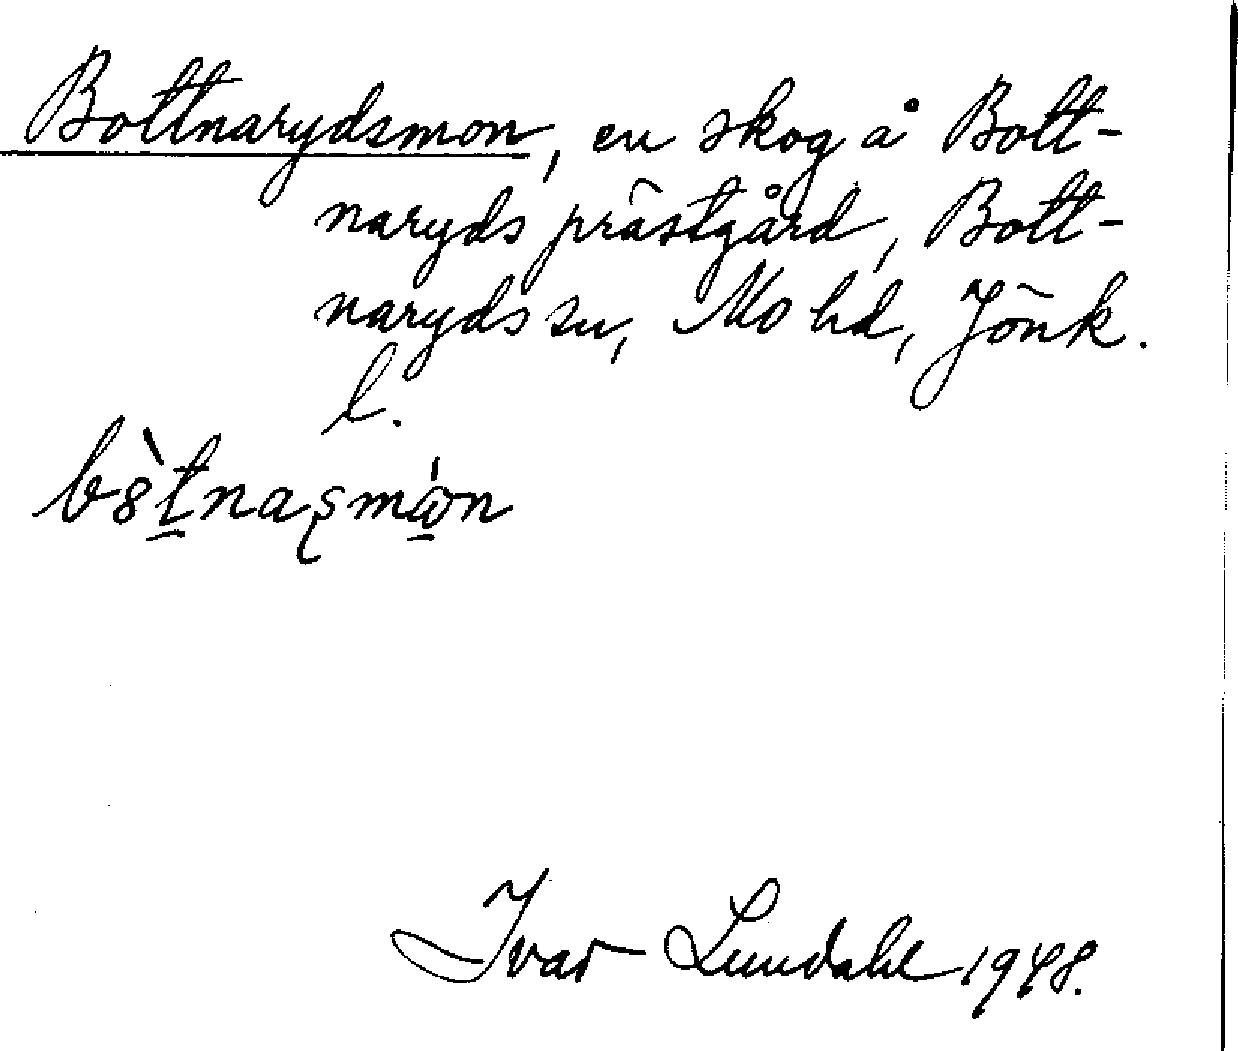 Bottnarydsmon, en skog å Bott-
naryds prästgård, Bott-
naryds sn, Mo hd, Jönk.
l.
Ivar Lundahl 1948.